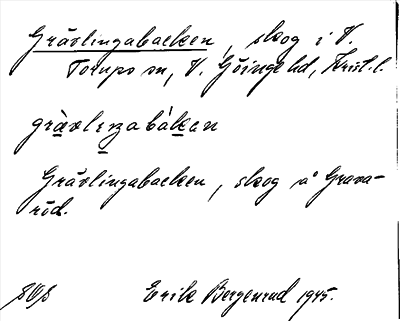 Grävlingabacken, skog i V.
Torups sn, V. Göinge hd, Krist. l.
grävlingabàkan
Grävlingabacken, skog å Grana-
röd.
Erik Bergenrud 1945.